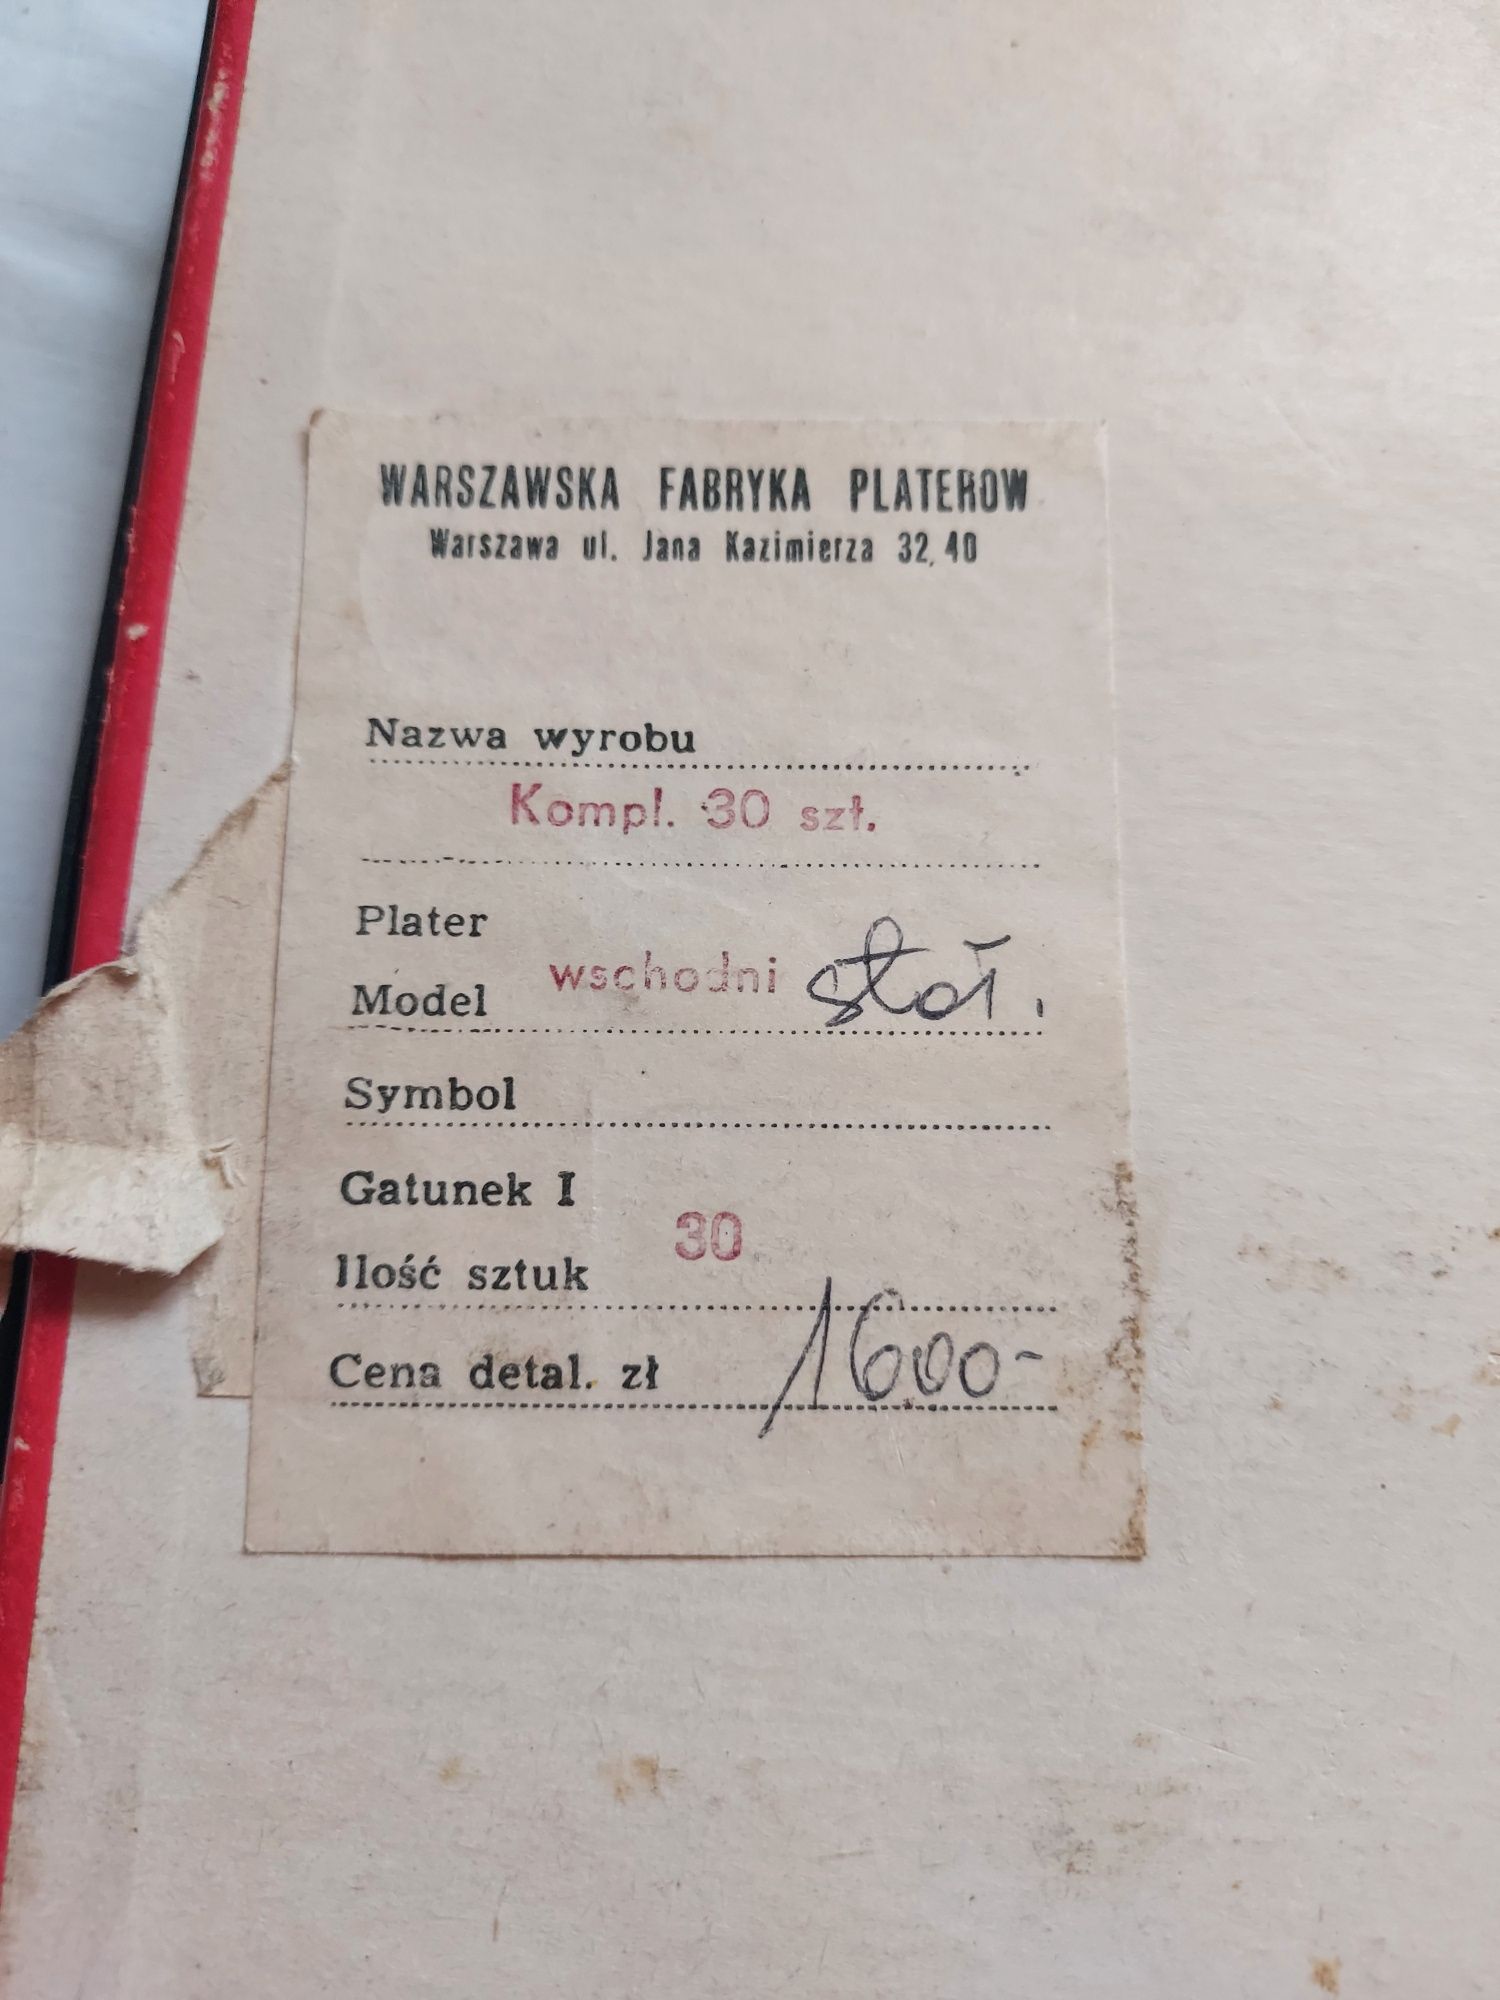 WARSZAWSKA FABRYKA PLATEROW
Warszawa ul. Jana Kazimierza 32,40
Nazwa wyrobu
Kompl. 30 szt.
Plater
Model wschodni stoł.
Symbol
Gatunek I
Ilość sztuk 30
Cena detal. zł 1600-